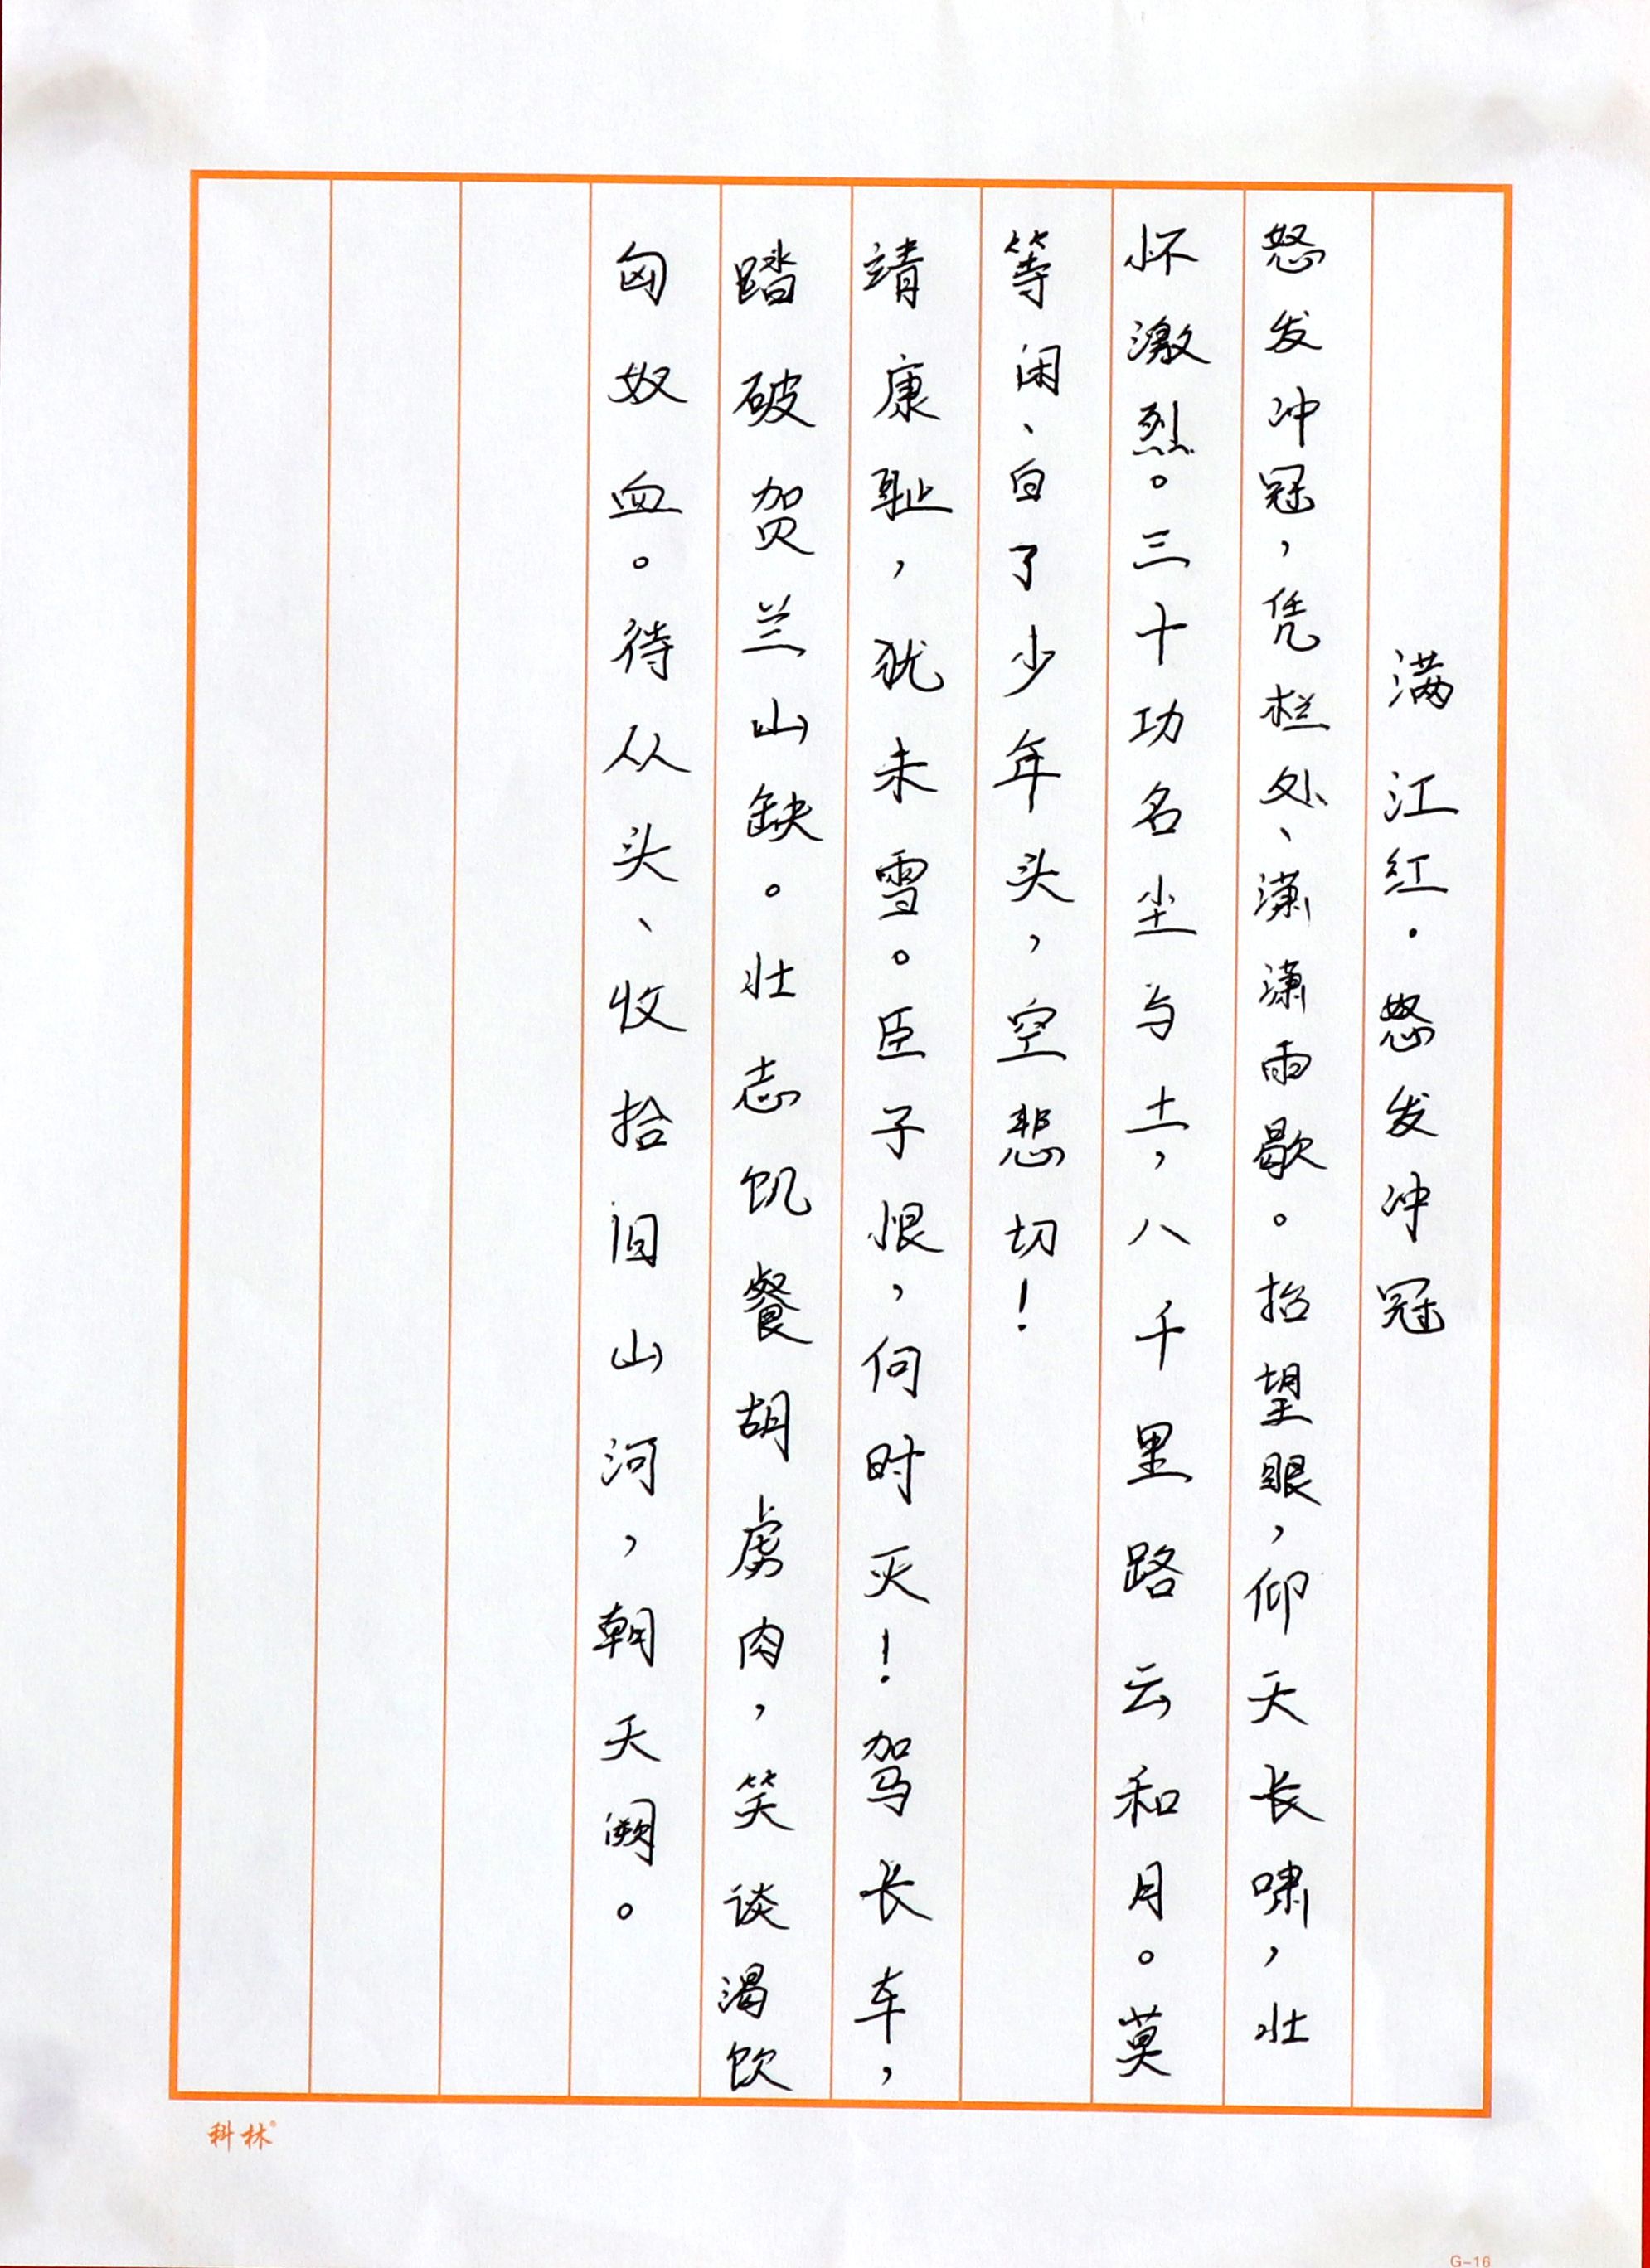 满江红·怒发冲冠
怒发冲冠，凭栏处、潇潇雨歇。抬望眼，仰天长啸，壮
怀激烈。三十功名尘与土，八千里路云和月。莫
等闲、白了少年头，空悲切！
靖康耻，犹未雪。臣子恨，何时灭！驾长车，
踏破贺兰山缺。壮志饥餐胡虏肉，笑谈渴饮
匈奴血。待从头、收拾旧山河，朝天阙。
科林®
G-16